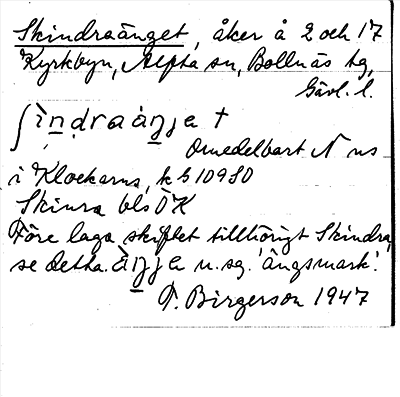 Skindraänget, åker å 2 och 17
Kyrkbyn, Alfta sn, Bollnäs tg,
Gävl. l.
ʃìndraàŋja †
Omedelbart N us
i Klockarns, k b 10980
Skinra bls ÖK
Före laga skiftet tillhörigt Skindra,
se detta. àŋja u. sg. 'ängsmark'.
P. Birgerson 1947